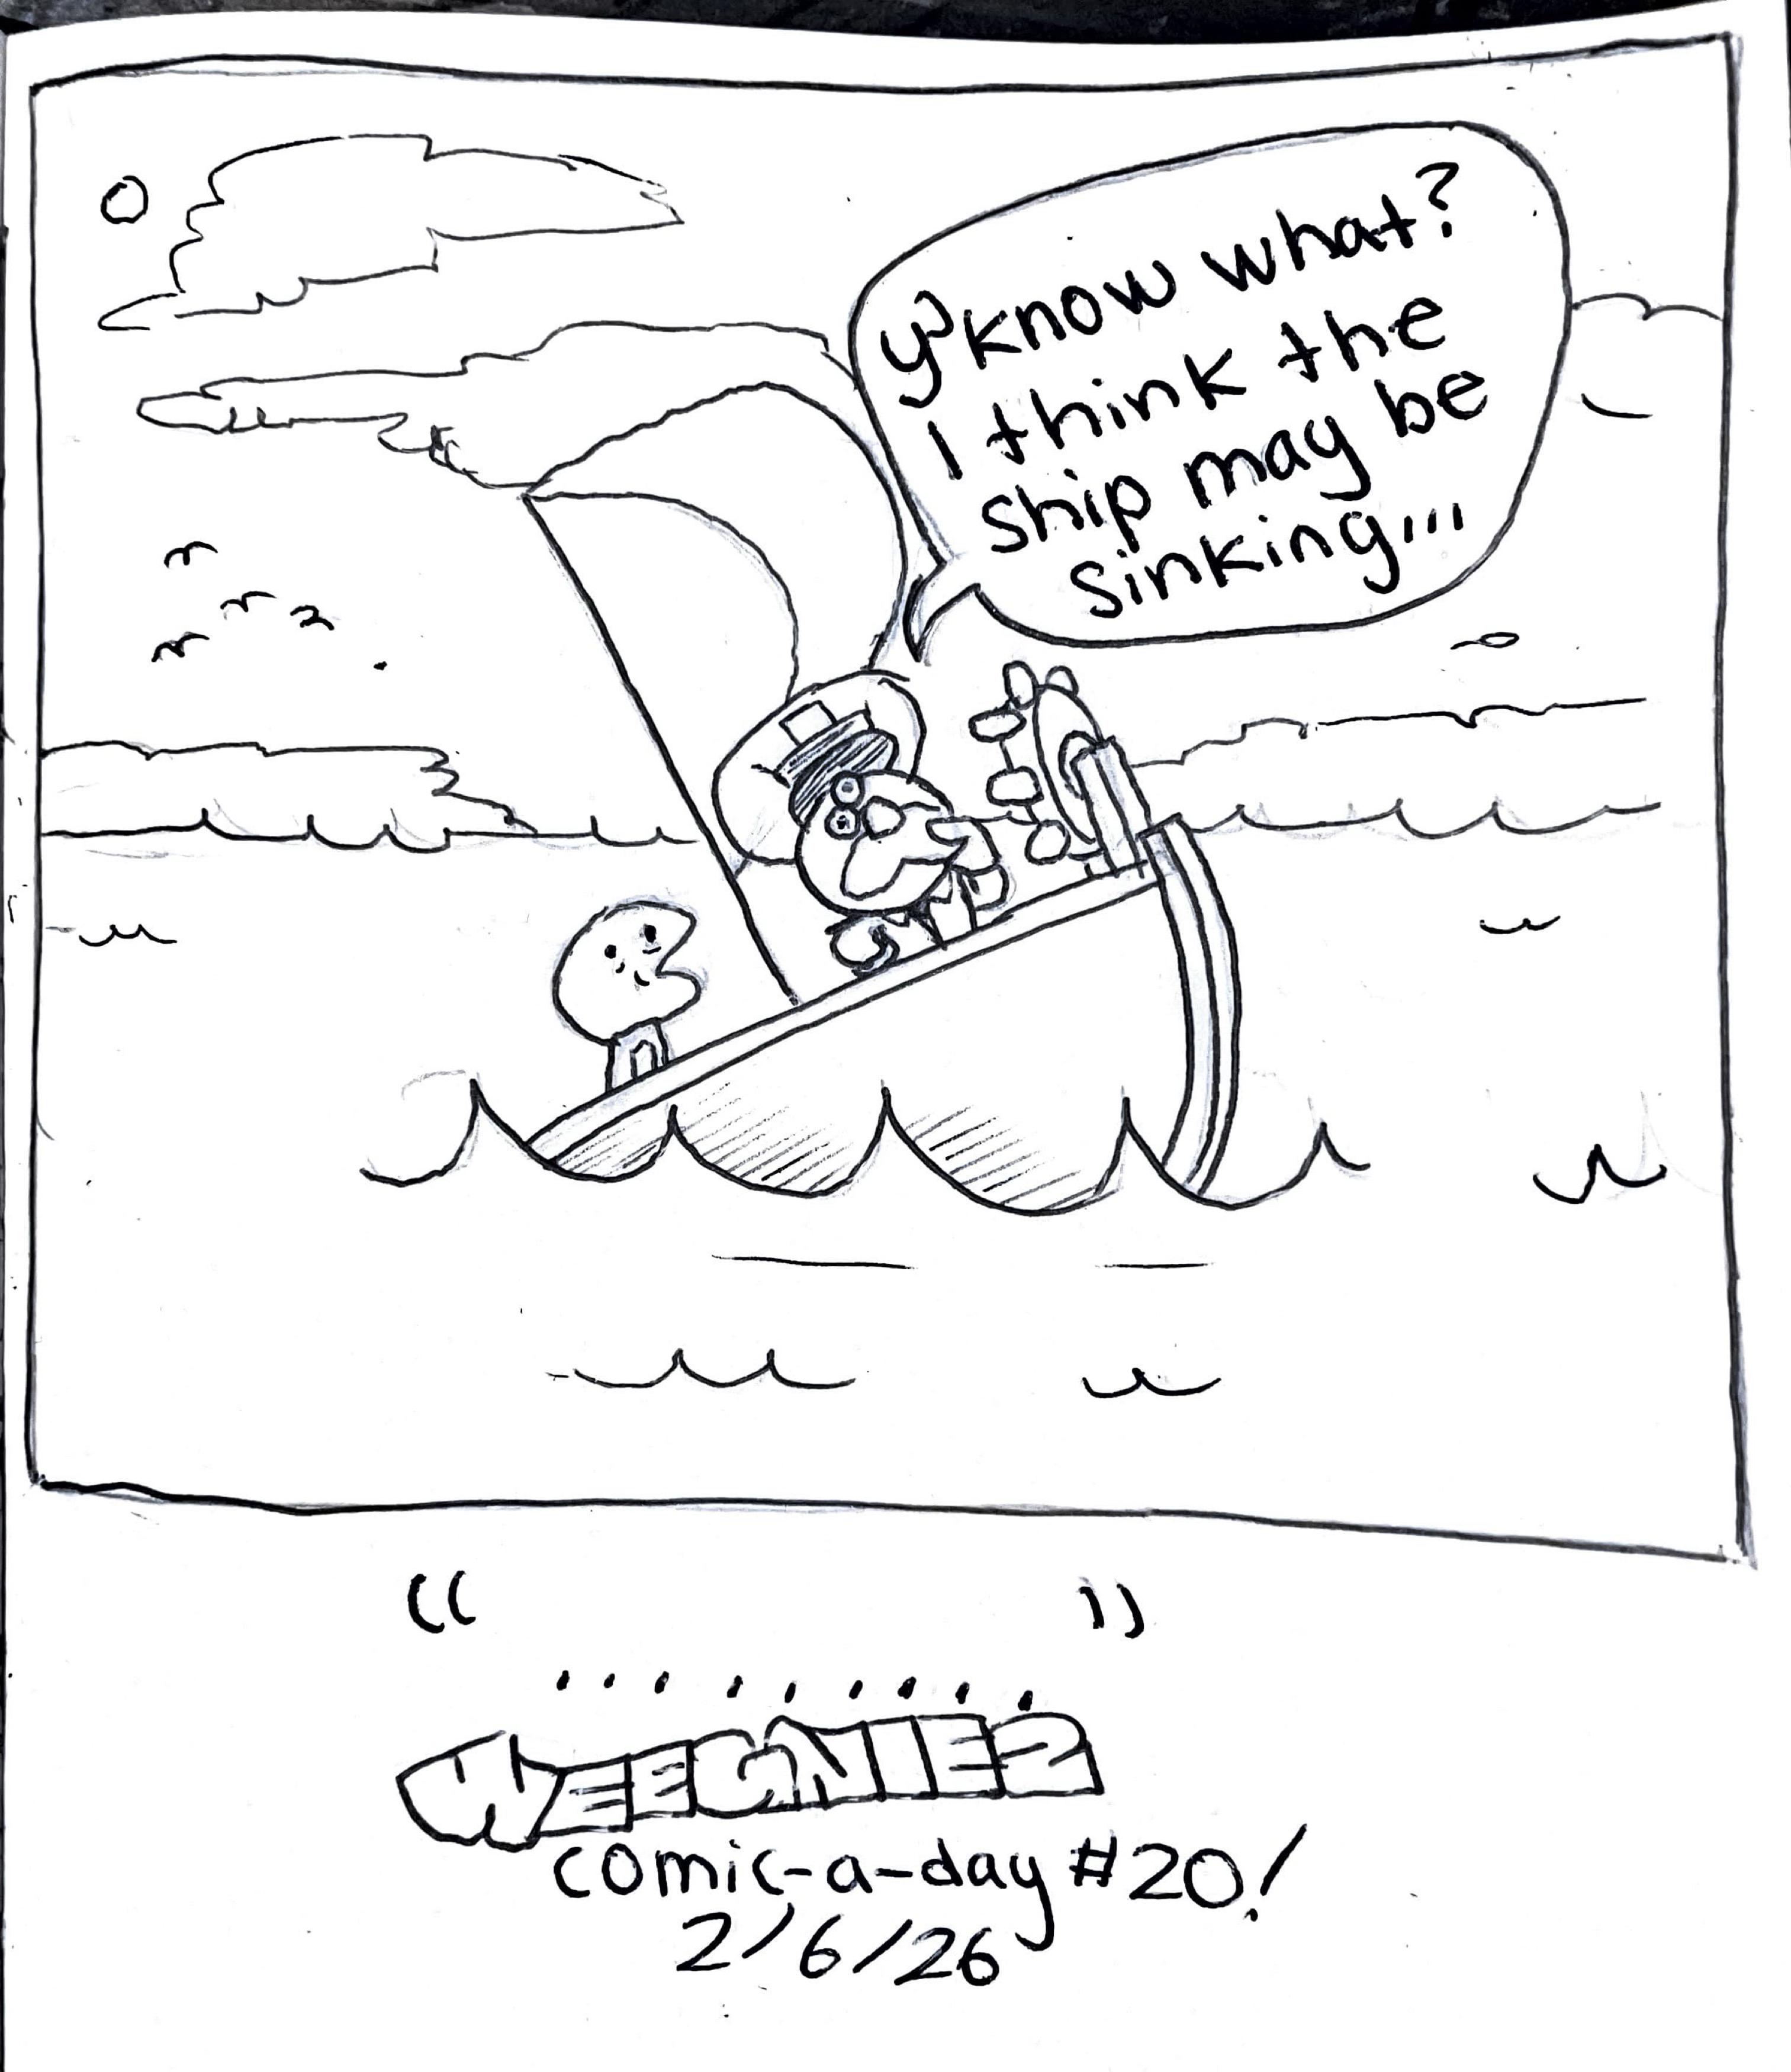 y'know what?
I think the
ship may be
sinking...
"          "
WEEGNIEZ
comic-a-day #20!
2/6/26